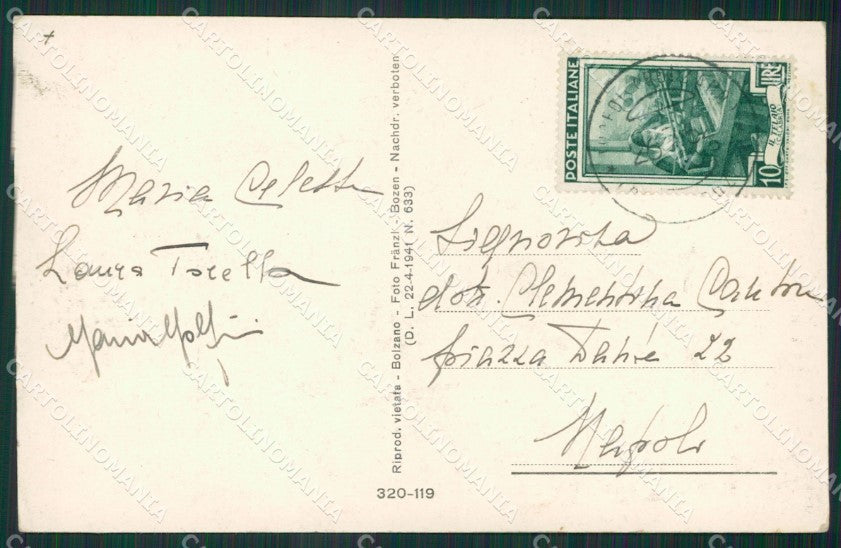 Maria Celeste
Laura Torella
Maria
Riprod. vietata - Bolzano - Foto Fränzl - Bozen - Nachdr. verboten
(D. L. 22-4-1941 N. 633)
320-119
POSTE ITALIANE
LIRE
10
IL TELAIO
Signorina
dott. Clementina
piazza Dante 22
Napoli
CARTOLINOMANIA